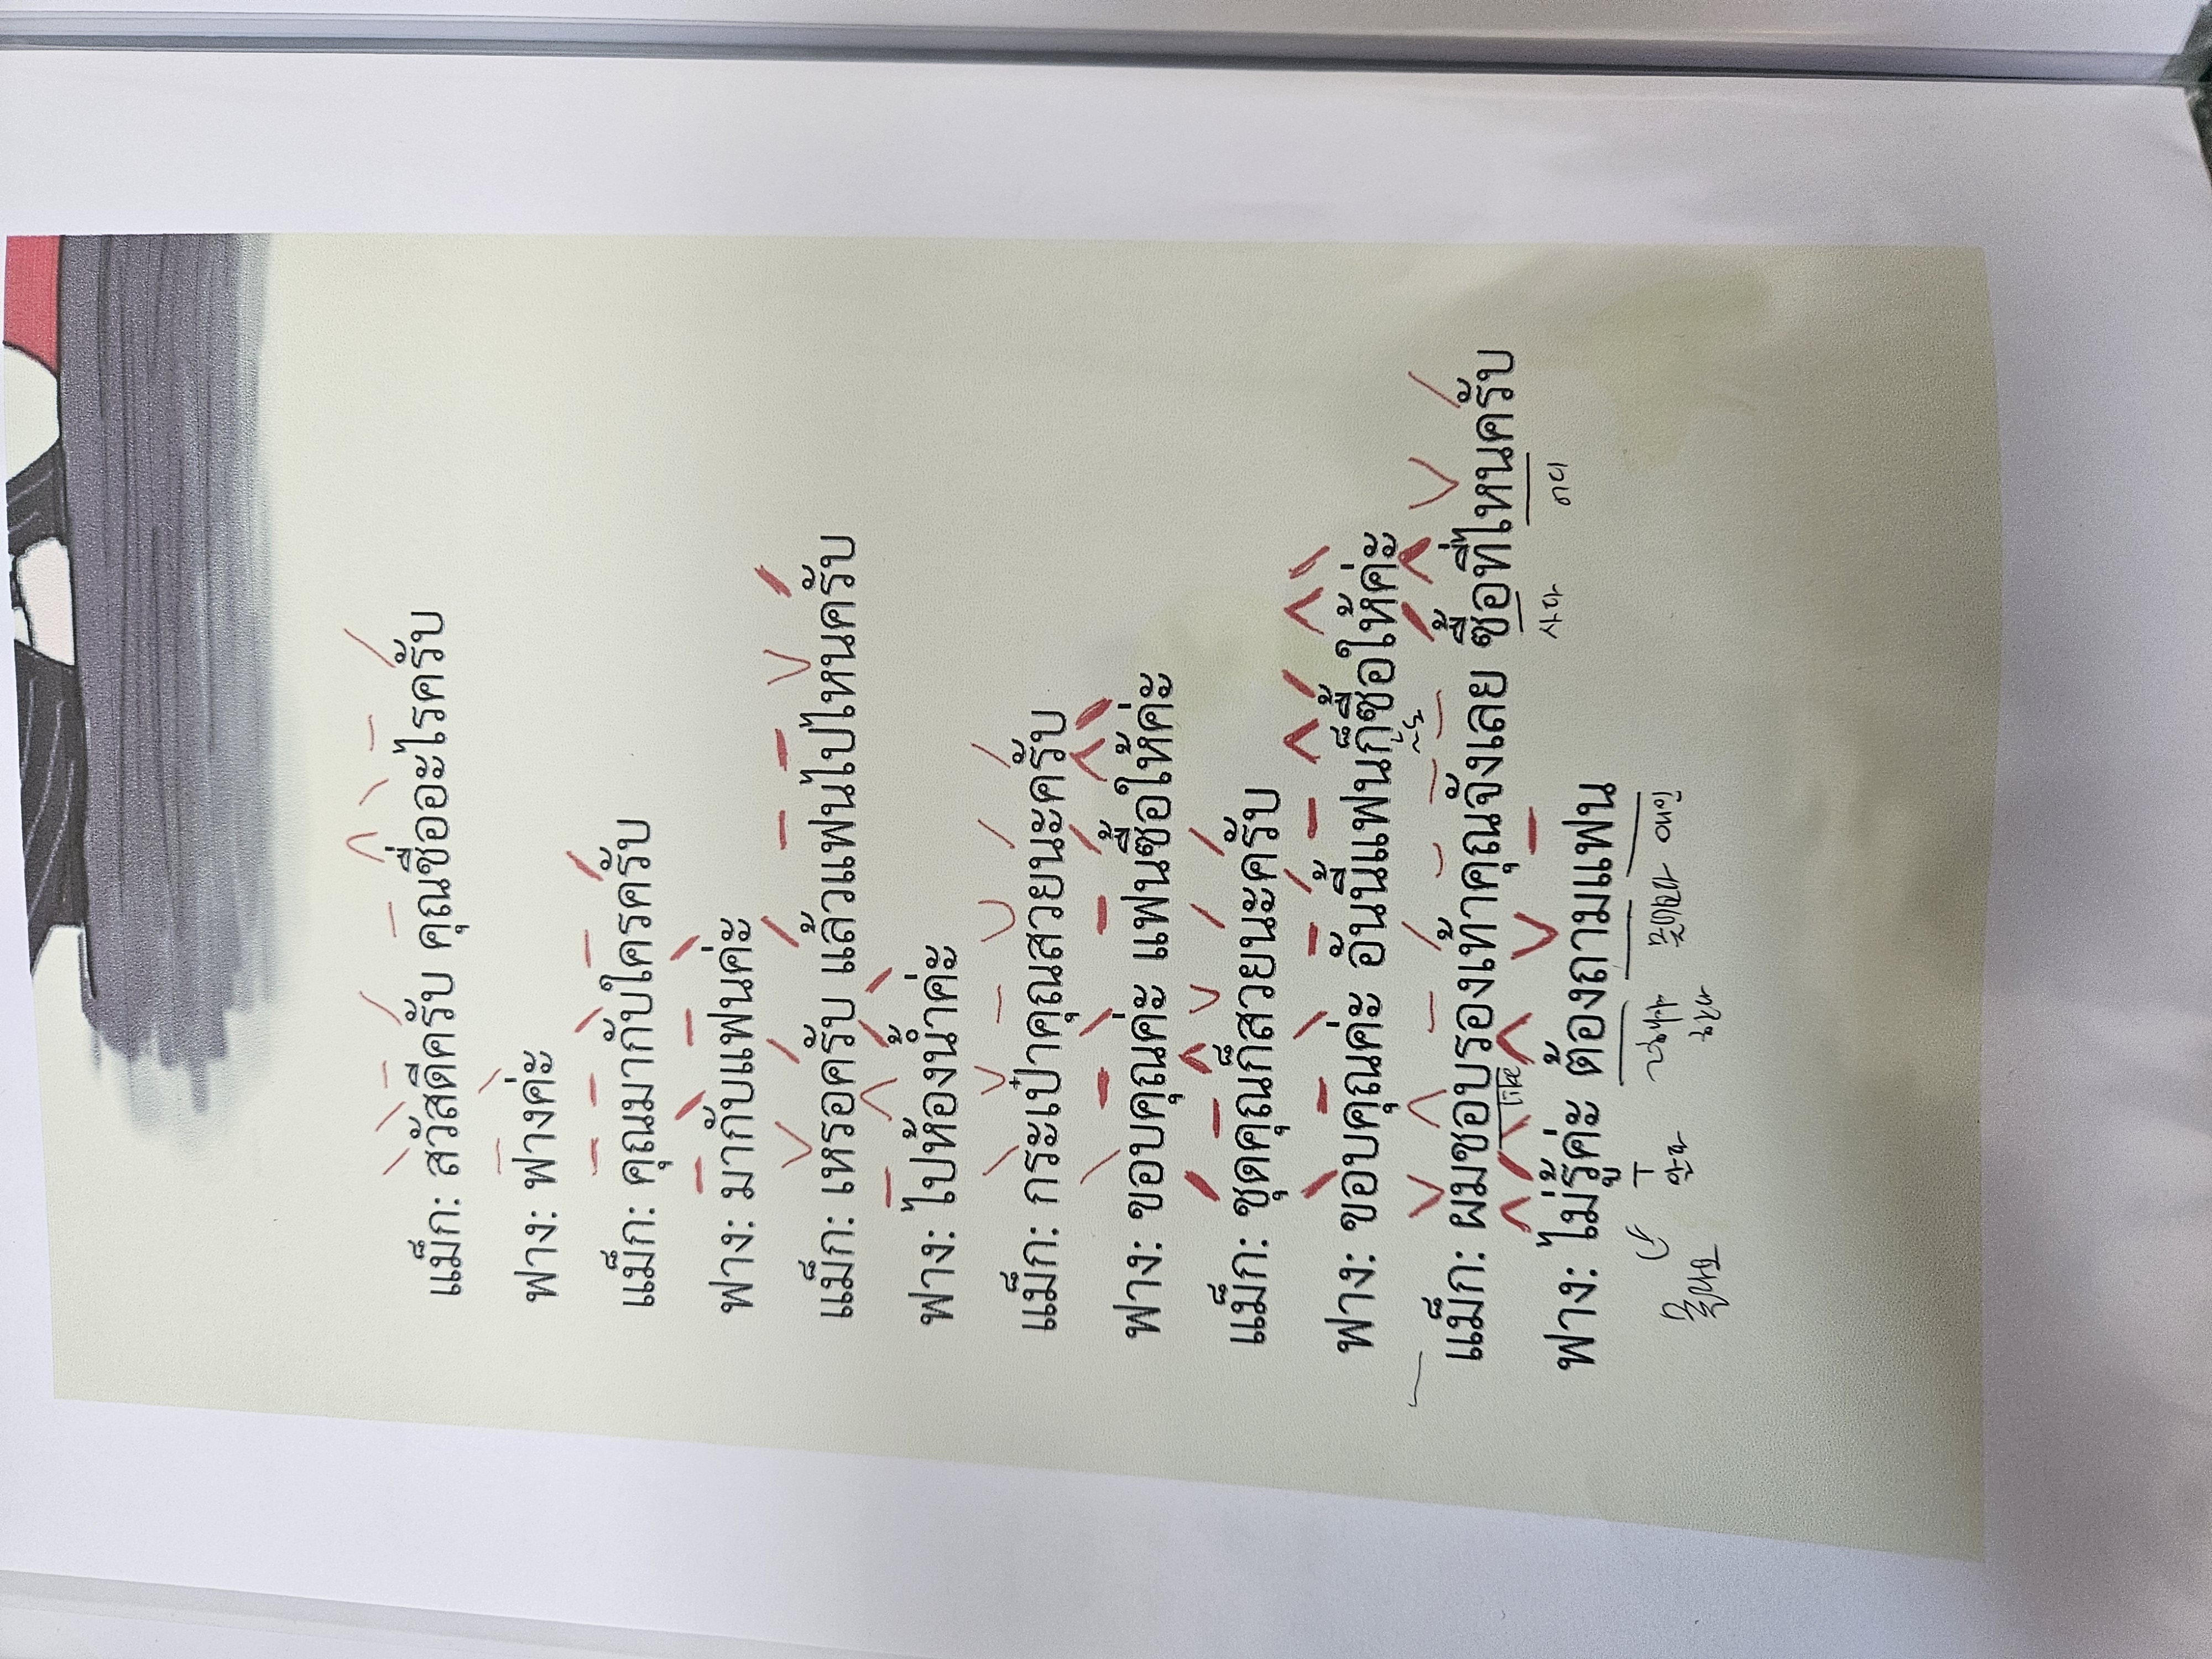 แม็ก: สวัสดีครับ คุณชื่ออะไรครับ
ฟาง: ฟางค่ะ
แม็ก: คุณมากับใครครับ
ฟาง: มากับแฟนค่ะ
แม็ก: เหรอครับ แล้วแฟนไปไหนครับ
ฟาง: ไปห้องน้ำค่ะ
แม็ก: กระเป๋าคุณสวยนะครับ
ฟาง: ขอบคุณค่ะ แฟนซื้อให้ค่ะ
แม็ก: ชุดคุณก็สวยนะครับ
ฟาง: ขอบคุณค่ะ อันนี้แฟนก็ซื้อให้ค่ะ
~도
แม็ก: ผมชอบรองเท้าคุณจังเลย ซื้อที่ไหนครับ
사다 어디
ฟาง: ไม่รู้ค่ะ ต้องถามแฟน
몰라요 안다 물어보다 애인
한다